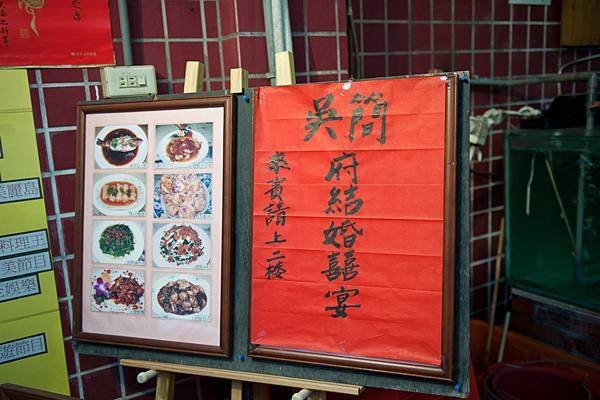 吳簡
府結婚囍宴
來賓請上二樓
美麗島
料理王
美節目
娛樂
遊節目